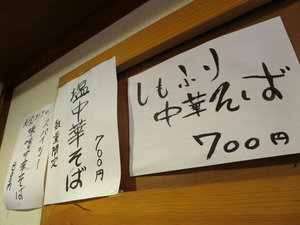 しもふり
中華そば
700円
塩中華そば
数量限定
700円
スパイシー
味噌中華そば